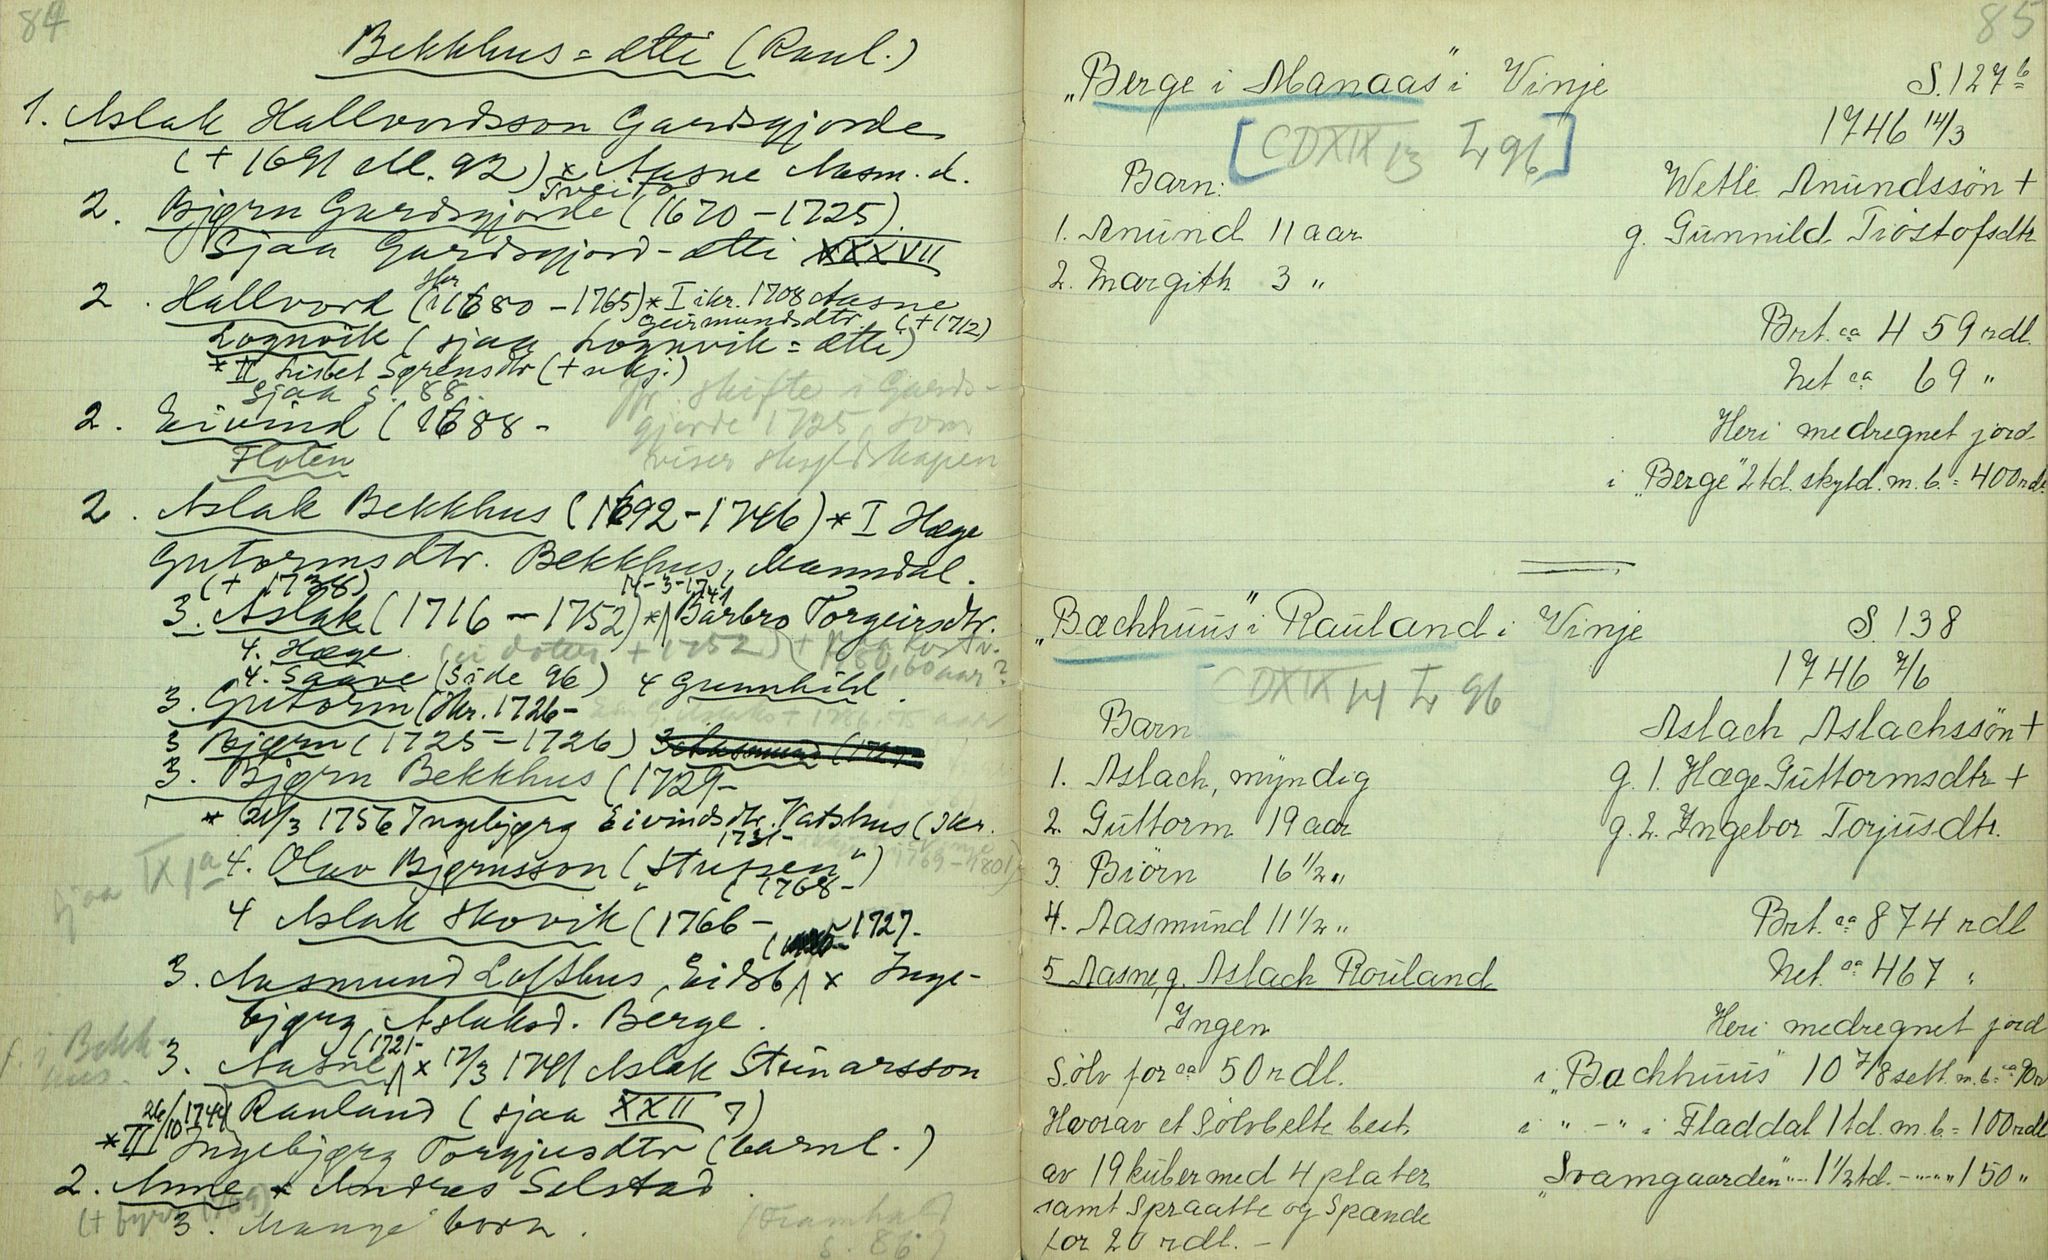 84
Bekkhus=ætti (Raul.)
1. Aslak Hallvordsson Gardsgjorde
(+ 1691 el. 92) * Aasne Aasm. d.
Tveito
2. Bjørn Gardsgjorde (1670-1725)
Sjaa Gardsgjord-ætti XXXVII
2. Hallvord (ikr. 1680-1765) * I ikr. 1708 Aasne
Geirmundsdtr. (+1712)
Lognvik (sjaa Lognvik=ætti)
* II Lisbet Sørensdtr (+ ukj.)
Sjaa s. 88.
2. Eivind (1688-
Floten
Jfr. skifte i Gards-
gjorde 1725, som
viser skyldskapen
2. Aslak Bekkhus (1692-1746) * I Hæge
Gutormsdtr. Bekkhus, Manndal.
(+ 1738)
14-3-1741
3. Aslak (1716-1752) * Barbro Torgeirsdtr.
4. Hæge (ei dotter +1752)
1780, 60 aar?
4. Saave (Side 96) 4 Gunnhild.
3. Gutorm (Ikr. 1726-
3 Bjørn (1725-1726) 3 Aasmund (1727
3. Bjørn Bekkhus (1729-
* 21/3 1756 Ingebjørg Eivindsdtr. Vatshus (Ikr.
1731-
1769-1801
sjaa IX 1a
4. Olav Bjørnsson ("Stugen")
(1768-
4 Aslak Skovik (1766-
1727-
3. Aasmund Lofthus, Eidsb * Inge-
bjørg Aslaksd. Berge.
f. i Bekk-
hus.
(1721-
3. Aasne * 17/3 1741 Aslak Steinarsson
Rauland (sjaa XXII 7)
26/10 1744
* II Ingebjørg Torgjusdtr (barnl.)
2. Anne * Andres Selstad.
3. Mange born.
(Framhald
s. 86)
85
"Berge i Manaas" i Vinje S. 127 b
1746 14/3
[CDXIX 13 I 96]
Barn: Wetle Anundssön +
1. Anund 11 aar g. Gunnild Tiostofsdtr
2. Margith 3 "
Brt. ca 459 rdl.
Net ca 69 "
Heri medregnet jord
i "Berge" 2 td. skyld. m. b. = 400 rdl.
"Bæchhuus" i Rauland i Vinje S. 138
1746 7/6
CDXIX 14 I 96
Barn Aslach Aslachssön +
1. Aslach, myndig g. 1. Hæge Guttormsdtr +
2. Guttorm 19 aar g. 2. Ingebor Torjusdtr.
3. Biörn 16 1/2 "
4. Aasmund 11 1/2 " Brt. ca 874 rdl
5 Aasne, g. Aslach Rouland Net. ca 467 "
Ingen Heri medregnet jord
Sölv for ca 50 rdl. i "Bachhuus" 10 7/8 sett. m. b. = ca 90 rd
Hvorav et Sölvbelte best. i " - " i Fladdal 1 td. m. b. = 100 rdl
av 19 kuber med 4 plater "Svamgaarden" - 1 1/2 td. - " - " " 150 "
samt Spraatte og Spænde
for 20 rdl. -